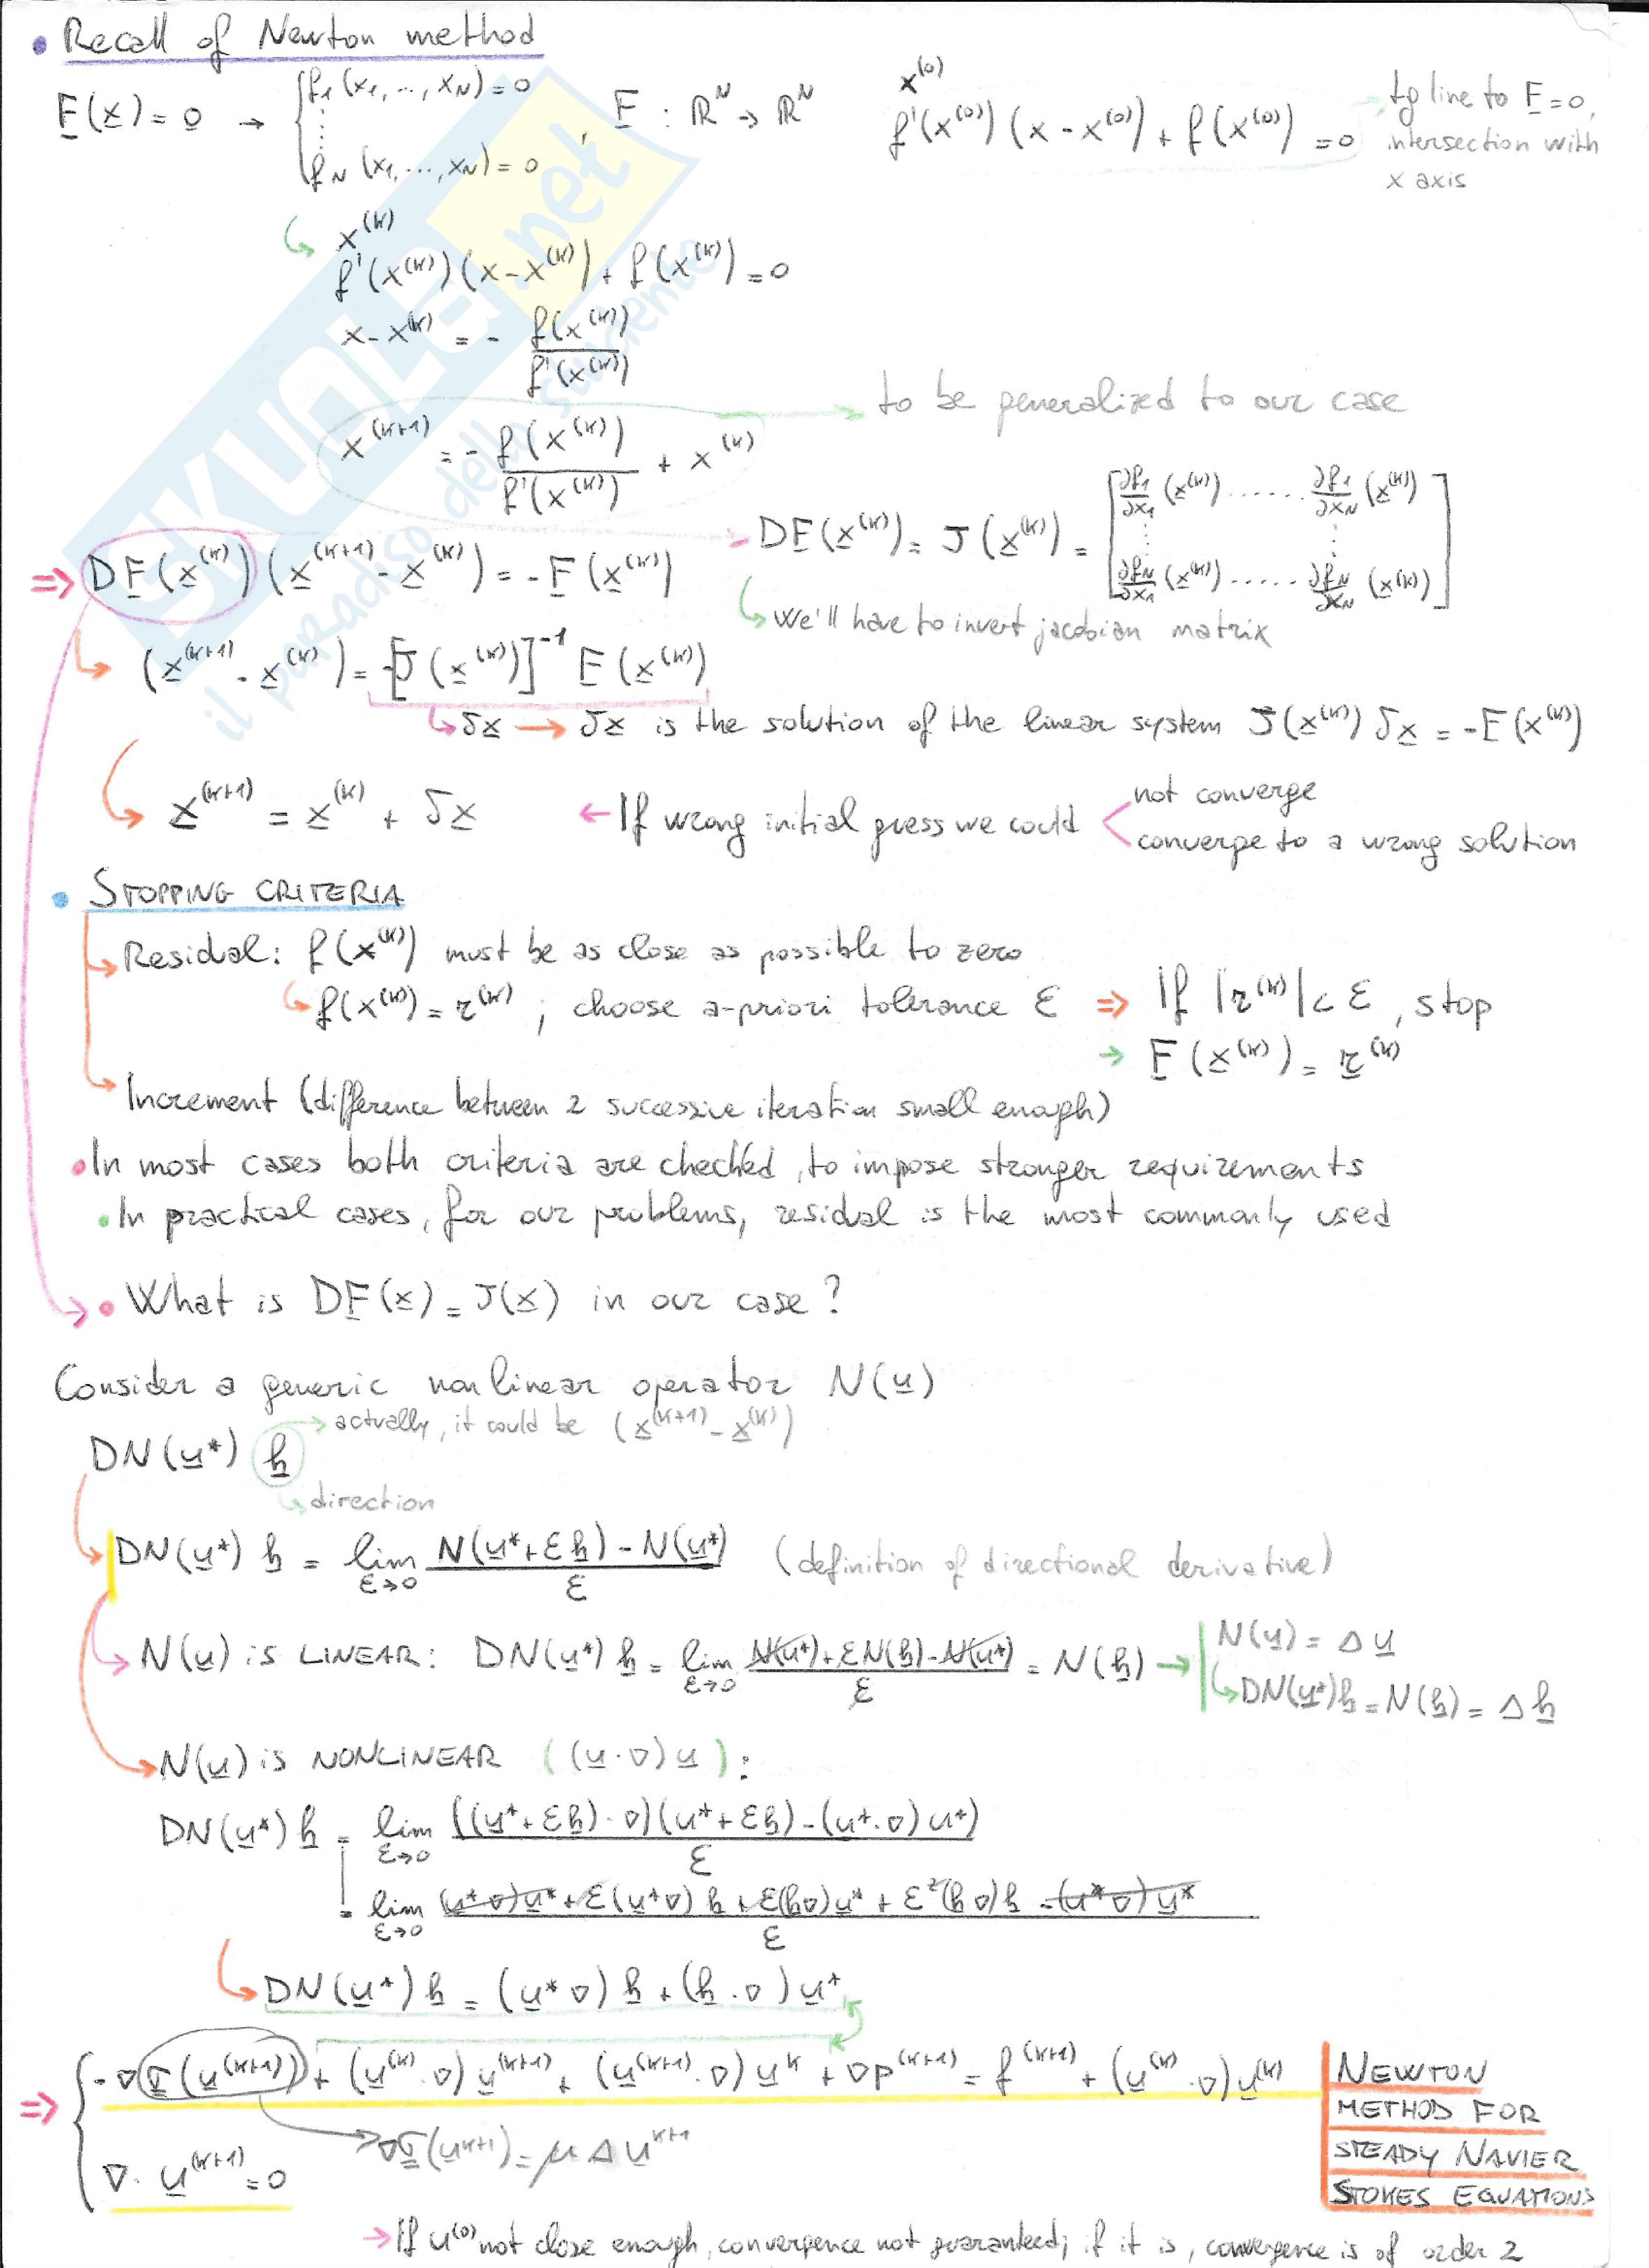 • Recall of Newton method
F(x) = 0 → { f₁(x₁, ..., x_N) = 0 ⋮ f_N(x₁, ..., x_N) = 0 , F : ℝᴺ → ℝᴺ
x⁽⁰⁾
f'(x⁽⁰⁾)(x - x⁽⁰⁾) + f(x⁽⁰⁾) = 0
tg line to F = 0,
intersection with
x axis
x⁽ᵏ⁾
f'(x⁽ᵏ⁾)(x - x⁽ᵏ⁾) + f(x⁽ᵏ⁾) = 0
x - x⁽ᵏ⁾ = - f(x⁽ᵏ⁾) / f'(x⁽ᵏ⁾)
x⁽ᵏ⁺¹⁾ = - f(x⁽ᵏ⁾) / f'(x⁽ᵏ⁾) + x⁽ᵏ⁾ → to be generalized to our case
⇒ DF(x⁽ᵏ⁾)(x⁽ᵏ⁺¹⁾ - x⁽ᵏ⁾) = -F(x⁽ᵏ⁾) → DF(x⁽ᵏ⁾) = J(x⁽ᵏ⁾) = [ ∂f₁/∂x₁ (x⁽ᵏ⁾) ...... ∂f₁/∂x_N (x⁽ᵏ⁾) ⋮ ⋮ ∂f_N/∂x₁ (x⁽ᵏ⁾) ..... ∂f_N/∂x_N (x⁽ᵏ⁾) ]
↳ We'll have to invert jacobian matrix
↳ (x⁽ᵏ⁺¹⁾ - x⁽ᵏ⁾) = -[J(x⁽ᵏ⁾)]⁻¹ F(x⁽ᵏ⁾)
↳ δx → δx is the solution of the linear system J(x⁽ᵏ⁾) δx = -F(x⁽ᵏ⁾)
↳ x⁽ᵏ⁺¹⁾ = x⁽ᵏ⁾ + δx ← If wrong initial guess we could < not converge
converge to a wrong solution
• STOPPING CRITERIA
→ Residual: f(x⁽ᵏ⁾) must be as close as possible to zero
↳ f(x⁽ᵏ⁾) = r⁽ᵏ⁾ ; choose a-priori tolerance ε ⇒ If |r⁽ᵏ⁾| < ε, stop
→ F(x⁽ᵏ⁾) = r⁽ᵏ⁾
→ Increment (difference between 2 successive iteration small enough)
• In most cases both criteria are checked, to impose stronger requirements
• In practical cases, for our problems, residual is the most commonly used
→ • What is DF(x) = J(x) in our case?
Consider a generic nonlinear operator N(u)
→ actually, it could be (x⁽ᵏ⁺¹⁾ - x⁽ᵏ⁾)
DN(u*) h
↳ direction
↳ DN(u*) h = lim ε→0 (N(u* + εh) - N(u*)) / ε (definition of directional derivative)
↳ N(u) is LINEAR: DN(u*) h = lim ε→0 (N(u*) + εN(h) - N(u*)) / ε = N(h) → N(u) = Δu
↳ DN(u*)h = N(h) = Δh
↳ N(u) is NONLINEAR ((u·∇)u):
DN(u*) h = lim ε→0 (((u* + εh)·∇)(u* + εh) - (u*·∇)u*) / ε
= lim ε→0 ((u*∇)u* + ε(u*∇)h + ε(h∇)u* + ε²(h∇)h - (u*∇)u*) / ε
↳ DN(u*) h = (u*∇)h + (h·∇)u*
⇒ { -∇σ(u⁽ᵏ⁺¹⁾) + (u⁽ᵏ⁾·∇)u⁽ᵏ⁺¹⁾ + (u⁽ᵏ⁺¹⁾·∇)uᵏ + ∇p⁽ᵏ⁺¹⁾ = f⁽ᵏ⁺¹⁾ + (u⁽ᵏ⁾·∇)u⁽ᵏ⁾
→ ∇σ(uᵏ⁺¹) = μΔuᵏ⁺¹
∇·u⁽ᵏ⁺¹⁾ = 0
NEWTON
METHOD FOR
STEADY NAVIER
STOKES EQUATIONS
→ If u⁽⁰⁾ not close enough, convergence not guaranteed; if it is, convergence is of order 2
SKUOLA.net
il paradiso dello studente